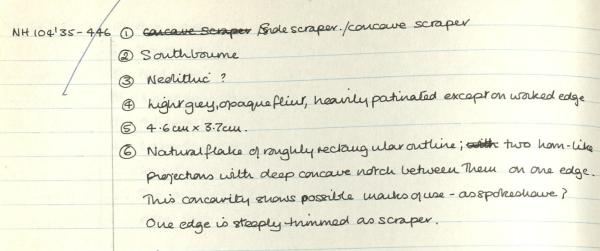 NH 104'35-446 ① concave scraper / Side scraper./concave scraper
② Southbourne
③ Neolithic ?
④ Light grey, opaque flint, heavily patinated except on worked edge
⑤ 4.6cm x 3.7cm.
⑥ Natural flake of roughly rectangular outline; with two horn-like
projections with deep concave notch between them on one edge.
This concavity shows possible marks of use - as spokeshave?
One edge is steeply trimmed as scraper.